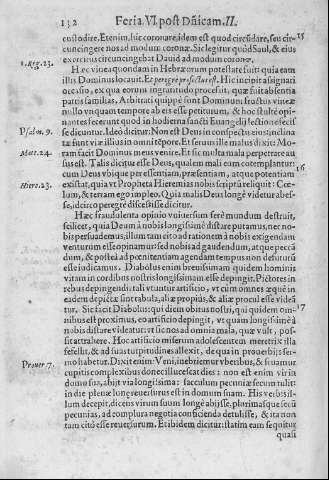 132 Feria.VI. post Dñicam.II.
custodire. Etenim, hic coronare, idem est quod circūdare, seu cir- 15
cuncingere nos ad modum coronæ. Sic legitur quòd Saul, & eius
1.Reg.23. exercitus circuncingebat Dauid ad modum coronæ.
Hæc vinea quondam in Hebræorum potestate fuit: quia eam
illis Dominus locauit. Et peregrè profectus est. Hic incipit assignari
occasio, ex qua eorum ingratitudo processit, quæ fuit absentia
patris familias. Arbitrati quippè sunt Dominum fructus vineæ
nullo vnquam tempore ab eis esse petiturum, & hoc stultè opi-
nantes fecerunt quod in hodierna sancti Euangelij lectione feciss
Psalm.9. se dicuntur. Ideò dicitur: Non est Deus in conspectu eius: inclina
tæ sunt viæ illius in omni tēpore. Et seruum ille malus dixit: Mo-
Matt.24. ram facit Dominus meus venire. Et sic multa mala perpetrare au
sus est. Talis dicitur esse Deus, qualem animali eam cotemplantur: 16
cum Deus vbique per essentiam, præsentiam, atque potentiam
Hiere.23. existat, quia vt Propheta Hieremias nobis scriptū reliquit: Cœ-
lum, & terram ego impleo. Quia malis Deus longè videtur abes-
se, idcirco peregrè discessisse dicitur.
Hæc fraudulenta opinio vniuersum ferè mundum destruit,
scilicet, quia Deum à nobis longissimè distare putamus, nec no-
bis persuademus, illum tam cito ad rationem à nobis exigendam
venturum esse opinamur: sed nobis ad gaudendum, atque peccā
dum, & posteà ad pœnitentiam agendam tempus non defuturū
esse iudicamus. Diabolus enim breuissimam quidem hominis
vitam in cordibus nostris longissimam esse depingit. Pictores in
rebus depingendis tali vtuntur artificio, vt cum omnes æquè in
eadem depictæ sint tabula, aliæ propiùs, & aliæ procul esse videā
tur. Sic facit Diabolus: qui dum obitus nostri, qui quidem om- 17
nibus est proximus, eo artificio depingit, vt quàm longissimè à
nobis distare videatur: vt sic nos ad omnia mala, quæ vult, pos-
sit attrahere. Hoc artificio miserum adolescentem meretrix illa
fefellit, & ad suas turpitudines allexit, de qua in prouerbijs ser-
Prouer 7. mo habetur. Dixit enim: Veni, inebriemur vberibus, & fruamur
cupitis complexibus donec illucescat dies: non est enim vir in
domo sua, abijt via longissima: sacculum pecuniæ secum tulit:
in die plenæ lunæ reuersurus est in domum suam. His verbis il-
lum decepit, dicens virum suum longè abijsse, plurimasque secū
pecunias, ad complura negotia conficienda detulisse, & ita non
tam citò esse reuersurum. Et ibidem dicitur: statim eam sequitur
quasi